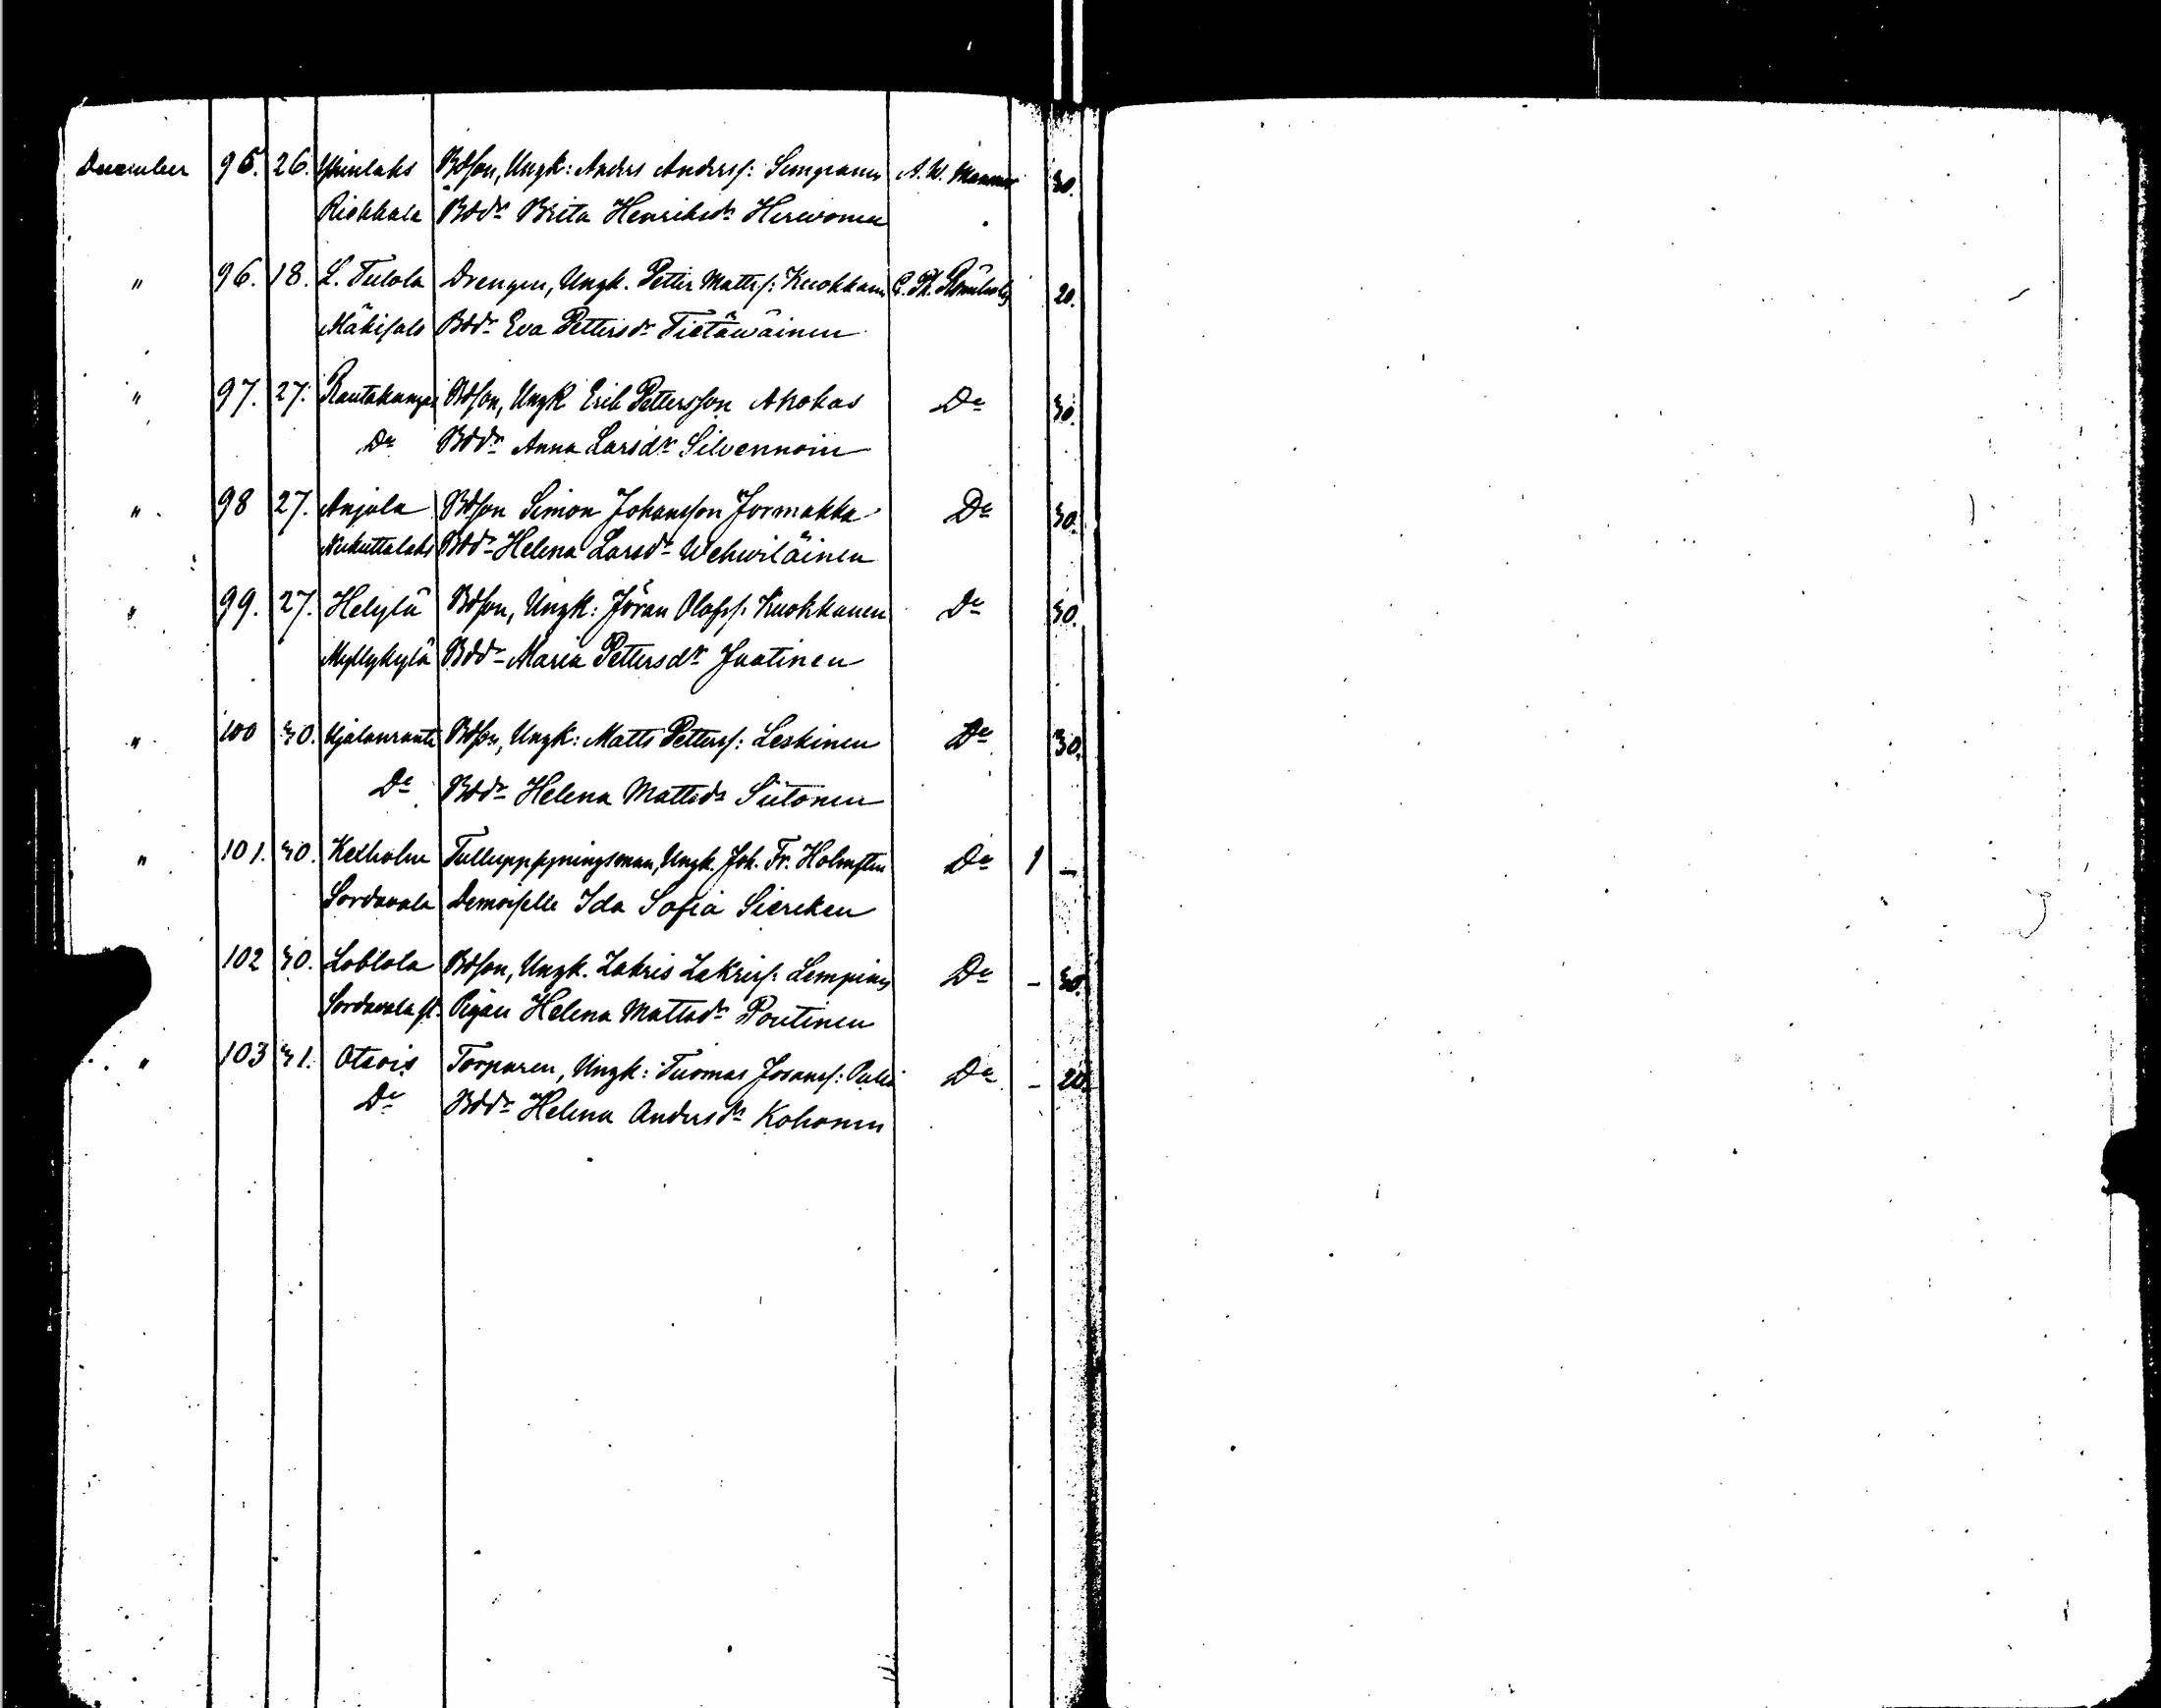 December 95. 26. Yhinlaks Bdson, Ungk: Anders Anderss: Sempanen A. W. Manner 30.
Riekkala Bddr Brita Henriksdr Hirvonen
" 96. 18. L. Tulola Drengen, Ungk. Petter Mattss: Kuokkanen C. Th. 20.
Mäkisalo Bddr Eva Pettersdr Tietäwäinen
" 97. 27. Rautakangas Bdson, Ungk Erik Pettersson Ahokas Do 30.
Do Bddr Anna Larsdr Silvennoin
" 98 27. Anjala Bdson Simon Johansson Jormakka Do 30.
Nukuttalaks Bddr Helena Larsdr Wehwiläinen
" 99. 27. Helylä Bdson, Ungk: Jöran Olofss: Kuokkanen Do 30.
Myllykylä Bddr Maria Pettersdr Jaatinen
" 100 30. Hjalanranta Bdson, Ungk: Matts Petterss: Leskinen Do 30.
Do Bddr Helena Mattsdr Siitonen
" 101. 30. Kexholm Tulluppsyningsman, Ungk. Joh. Fr. Holmsten Do 1 –
Sordavala Demoiselle Ida Sofia Siereken
102 30. Loblola Bdson, Ungk. Zakris Zakriss: Lempinen Do – 30.
Sordavala st. Pigan Helena Mattsdr Poutinen
" 103 31. Otsois Torparen, Ungk: Tuomas Do – 20.
Do Bddr Helena Andersdr Kohonen